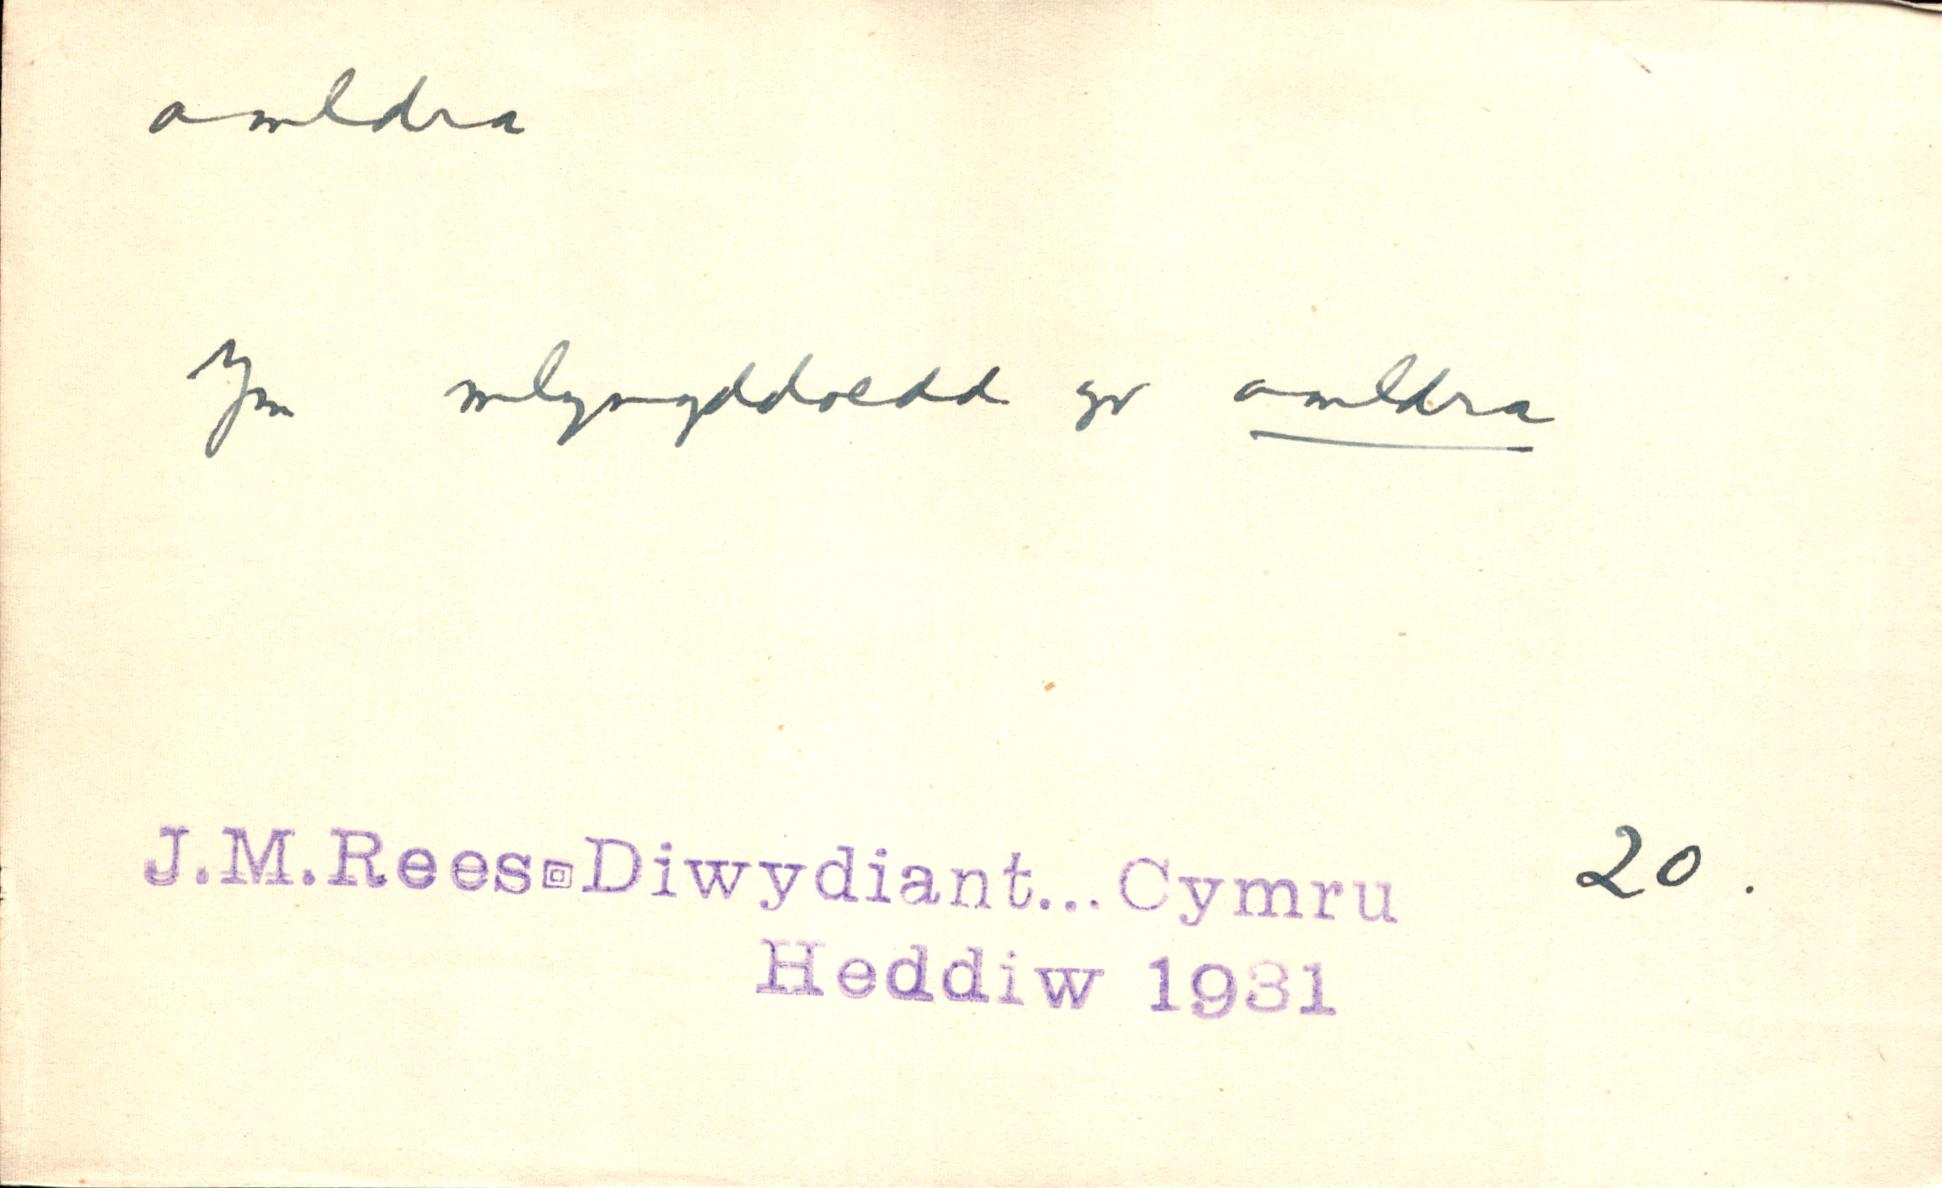 amldra
Ym mlynyddoedd yr amldra
J.M.Rees Diwydiant... Cymru 20.
Heddiw 1931